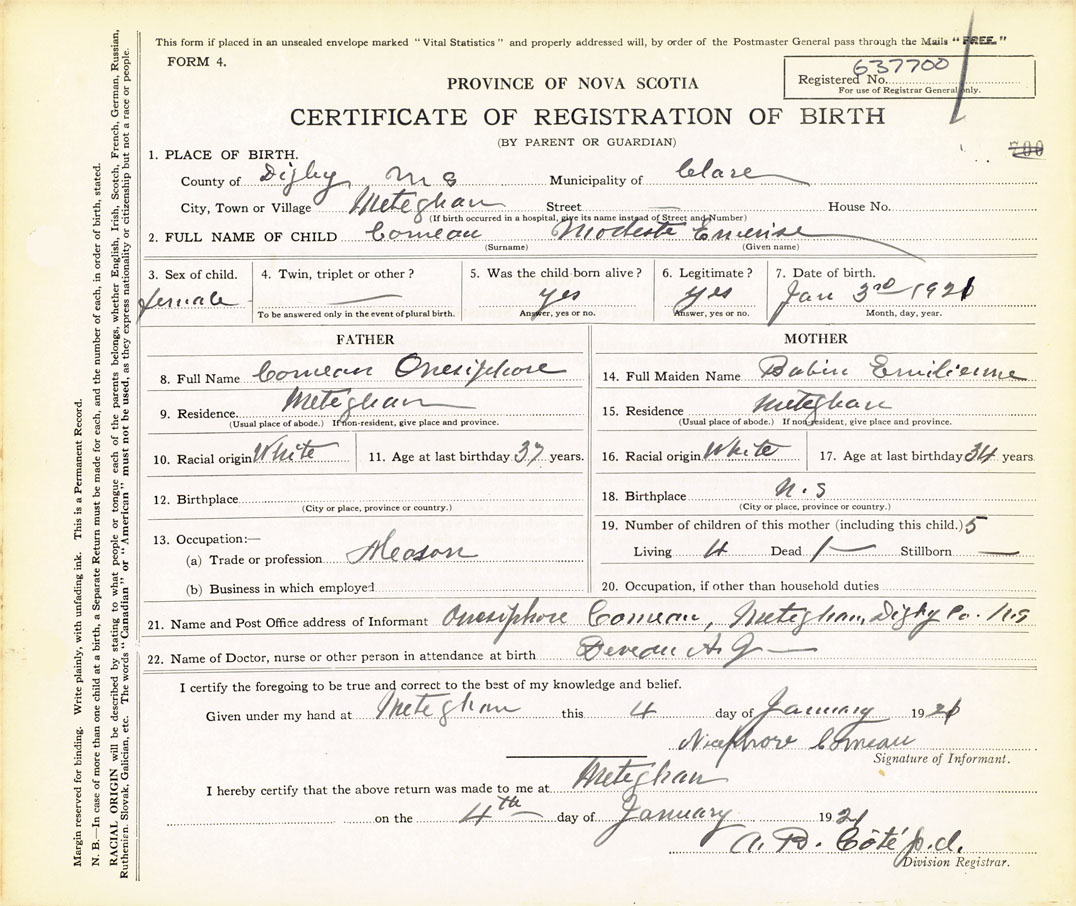 This form if placed in an unsealed envelope marked "Vital Statistics" and properly addressed will, by order of the Postmaster General pass through the Mails "FREE."
FORM 4.
637700
Registered No.
For use of Registrar General only.
PROVINCE OF NOVA SCOTIA
CERTIFICATE OF REGISTRATION OF BIRTH
(BY PARENT OR GUARDIAN)
700
1. PLACE OF BIRTH.
County of Digby N S Municipality of Clare
City, Town or Village Meteghan Street — House No.
(If birth occurred in a hospital, give its name instead of Street and Number)
2. FULL NAME OF CHILD Comeau Modeste Emerise
(Surname) (Given name)
3. Sex of child. 4. Twin, triplet or other? 5. Was the child born alive? 6. Legitimate? 7. Date of birth.
female — yes yes Jan 3rd 1921
To be answered only in the event of plural birth. Answer, yes or no. Answer, yes or no. Month, day, year.
FATHER MOTHER
8. Full Name Comeau Onesiphore 14. Full Maiden Name Babin Emilienne
9. Residence. Meteghan 15. Residence Meteghan
(Usual place of abode.) If non-resident, give place and province. (Usual place of abode.) If non-resident, give place and province.
10. Racial origin White 11. Age at last birthday 37 years. 16. Racial origin White 17. Age at last birthday 34 years
12. Birthplace 18. Birthplace N. S
(City or place, province or country.) (City or place, province or country.)
13. Occupation:— 19. Number of children of this mother (including this child.) 5
(a) Trade or profession Meason Living 4 Dead 1 — Stillborn —
(b) Business in which employed 20. Occupation, if other than household duties
21. Name and Post Office address of Informant Onesiphore Comeau, Meteghan, Digby Co. N.S
22. Name of Doctor, nurse or other person in attendance at birth Deveau A G —
I certify the foregoing to be true and correct to the best of my knowledge and belief.
Given under my hand at Meteghan this 4 day of January 1921
Nicephore Comeau
Signature of Informant.
I hereby certify that the above return was made to me at Meteghan
on the 4th day of January 1921
A. B. Côté p.d.
Division Registrar.
Margin reserved for binding. Write plainly, with unfading ink. This is a Permanent Record.
N. B.—In case of more than one child at a birth, a Separate Return must be made for each, and the number of each, in order of birth, stated.
RACIAL ORIGIN will be described by stating to what people or tongue each of the parents belongs, whether English, Irish, Scotch, French, German, Russian,
Ruthenian, Slovak, Galician, etc. The words "Canadian" or "American" must not be used, as they express nationality or citizenship but not a race or people.